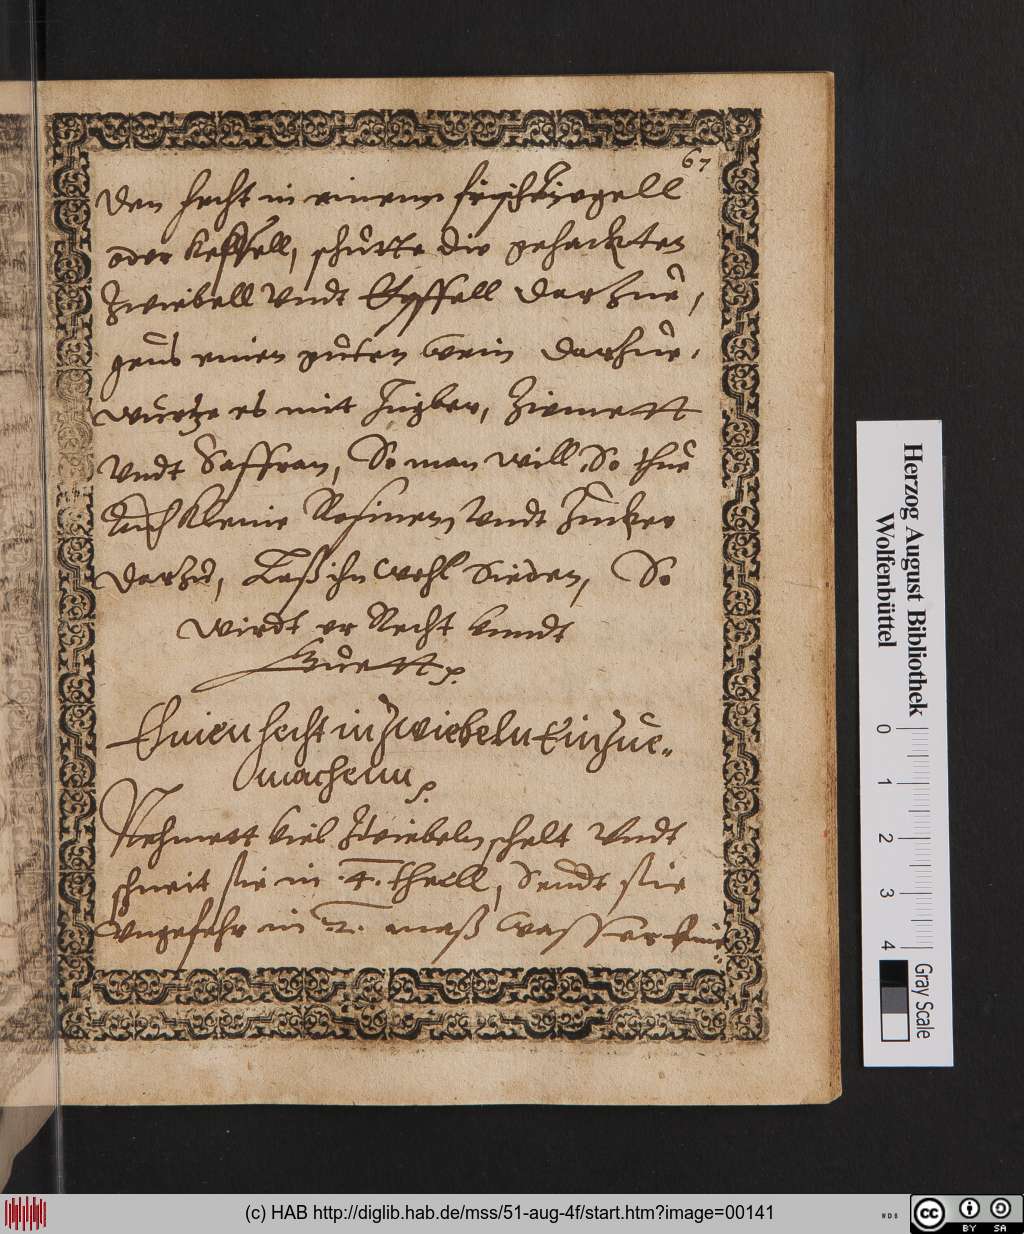 67
Den hecht in einem fischkiegell
oder Keſsell, schütte die gehackten
Zwiebell Vndt Epffell darzue,
geus einen guten Wein darzue,
würtze es mit Ingber, Zimett
Vndt Saffran, So man will, So thue
Auch Kleine Rosinen Vndt Zucker
darzu, Laß ihn wohl Sieden, So
wirdt er Recht Vnndt
Guett
Einen hecht in Zwiebeln Einzue-
machenn
Nehmett viel Zwiebeln schelt Vndt
schneit sie in .4. theill, Seudt sie
Vngefehr in .2. maß Wasser
Herzog August Bibliothek
Wolfenbüttel
0 1 2 3 4
Gray Scale
(c) HAB http://diglib.hab.de/mss/51-aug-4f/start.htm?image=00141
WDB
cc BY SA